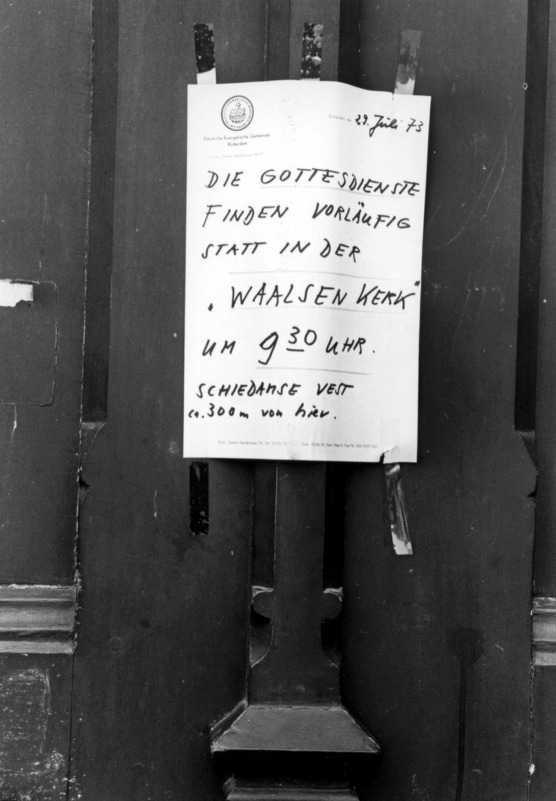 29. Juli 73
Deutsche Evangelische Gemeinde
Rotterdam
DIE GOTTESDIENSTE
FINDEN VORLÄUFIG
STATT IN DER
„WAALSEN KERK"
UM 9 30 UHR.
SCHIEDAMSE VEST
ca. 300 m von hier.